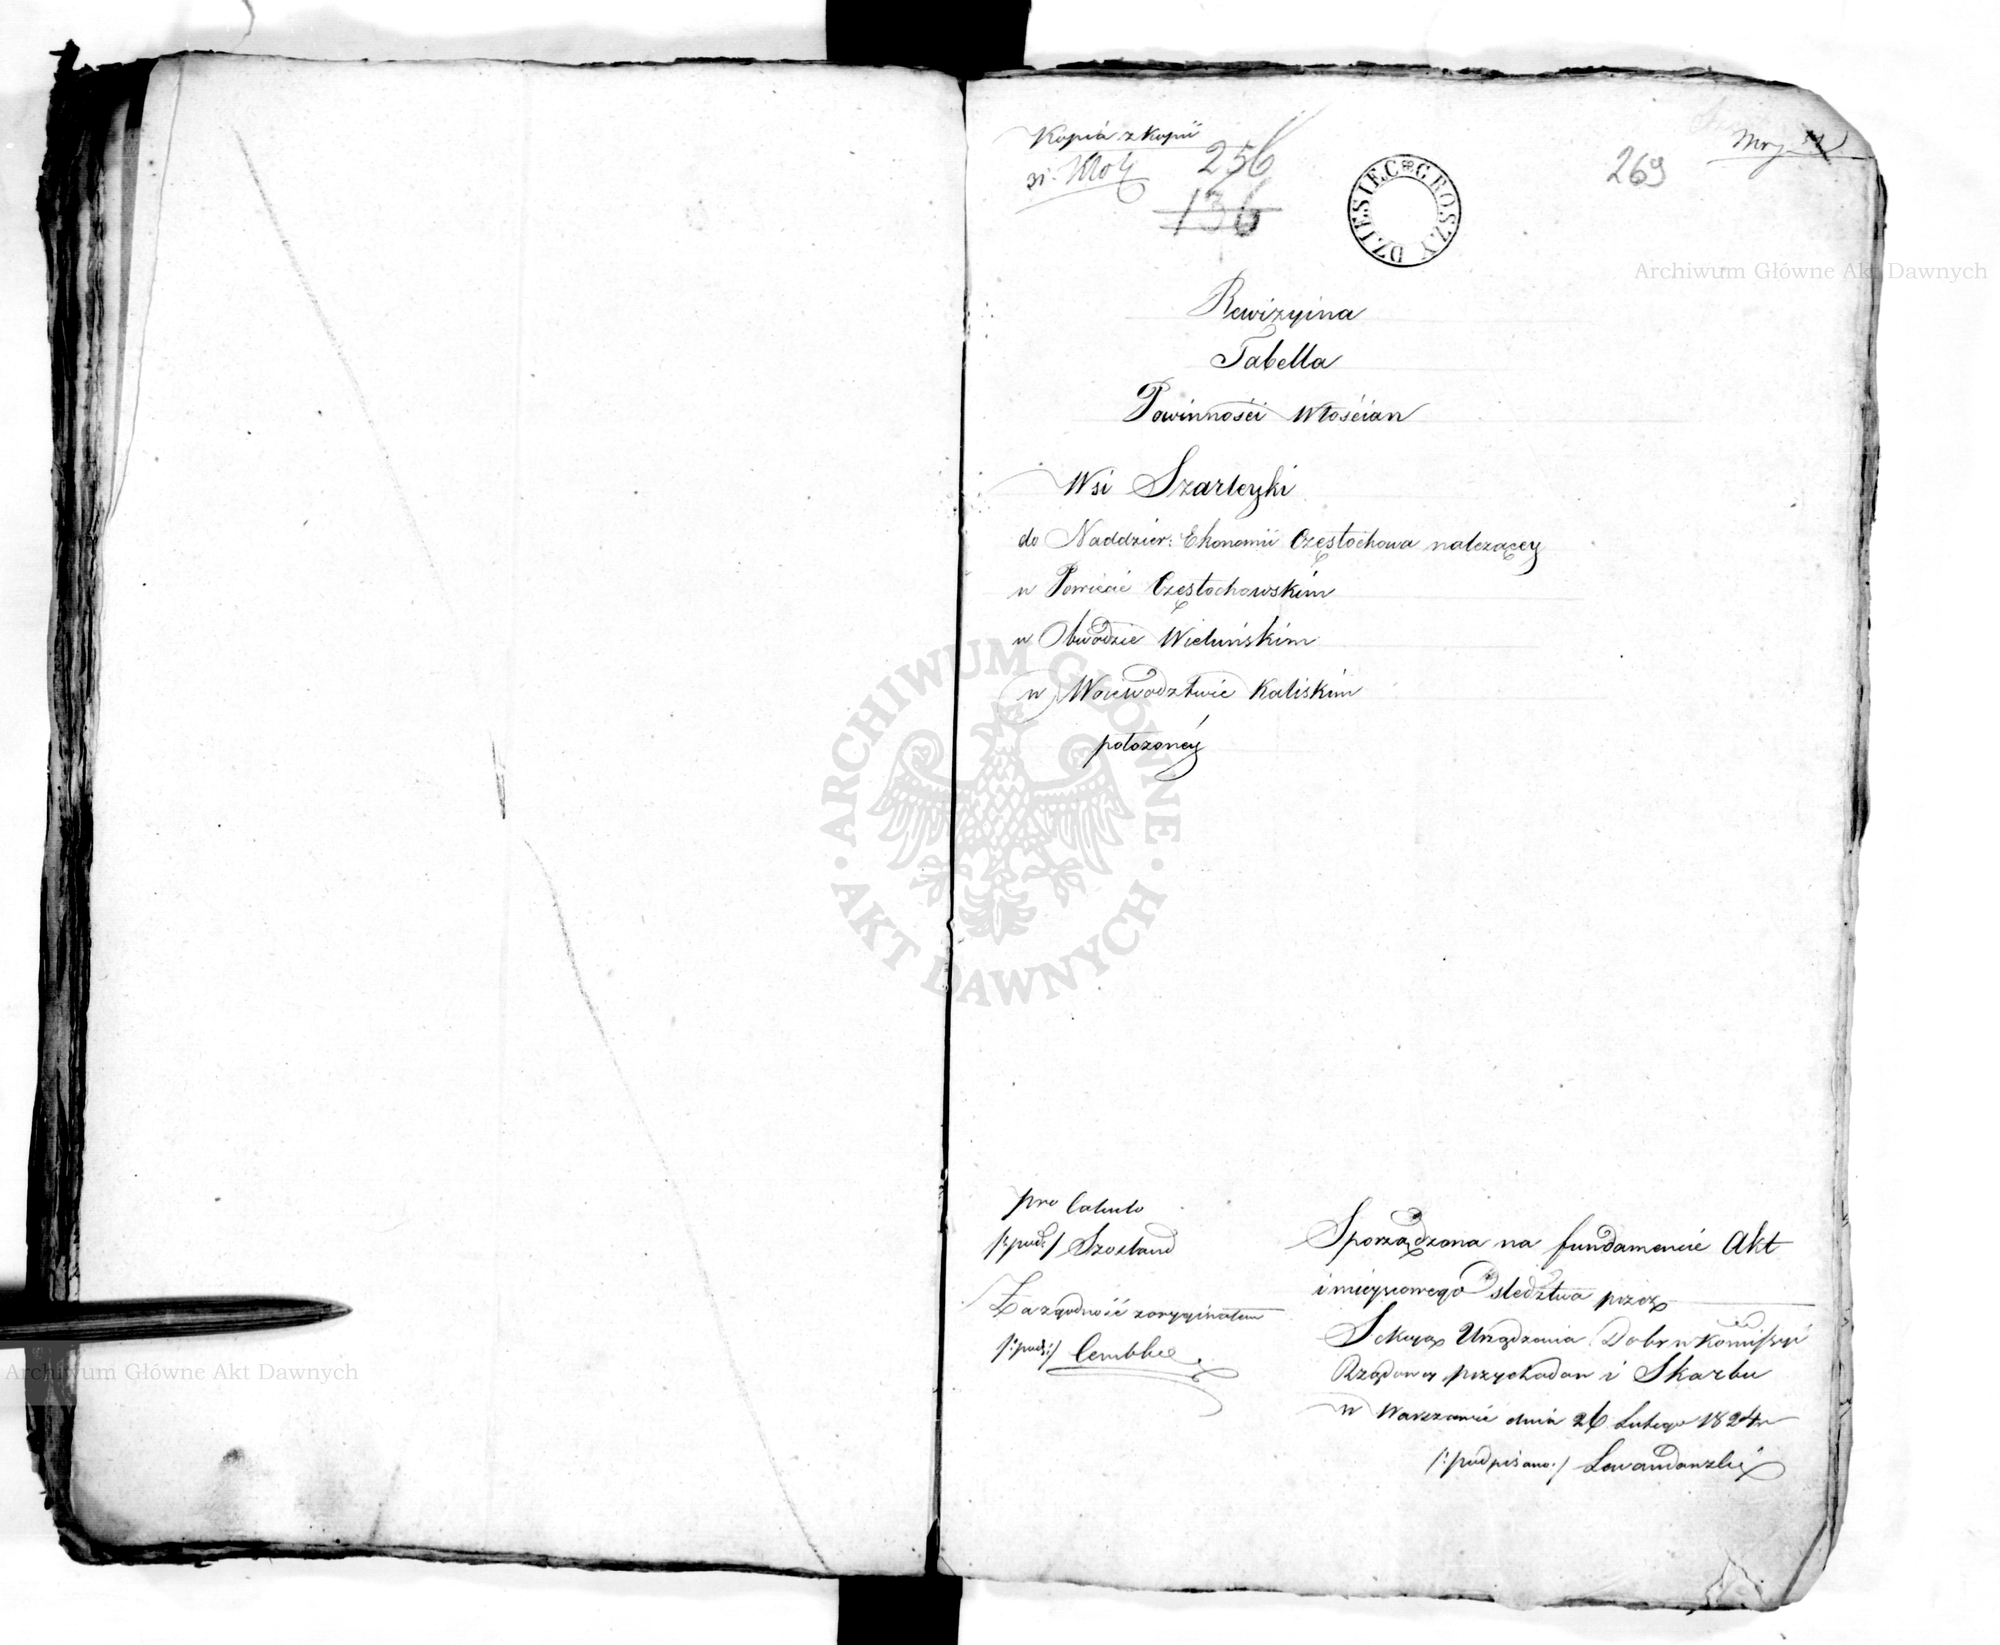 Kopia z kopii
256
136
DZIESIĘC GROSZY
269
Rewizyina
Tabella
Powinności Włościan
Wsi Szarleyki
do Naddzier: Ekonomii Częstochowa należącey
w Powiecie Częstochowskim
w Obwodzie Wieluńskim
w Woiewodztwie Kaliskim
położoney
pro Calculo
/:pod:/ Szostand
Za zgodność z oryginałem
/:podp:/ Lembke
Sporządzona na fundamencie Akt
i mieyscowego śledztwa przez
Sekcyą Urządzenia Dobr w Kommissyi
Rządowey przychodów i Skarbu
w Warszawie dnia 26 Lutego 1824 r
/:podpisano:/ Lewandowski
Archiwum Główne Akt Dawnych
ARCHIWUM GŁÓWNE AKT DAWNYCH
Archiwum Główne Akt Dawnych